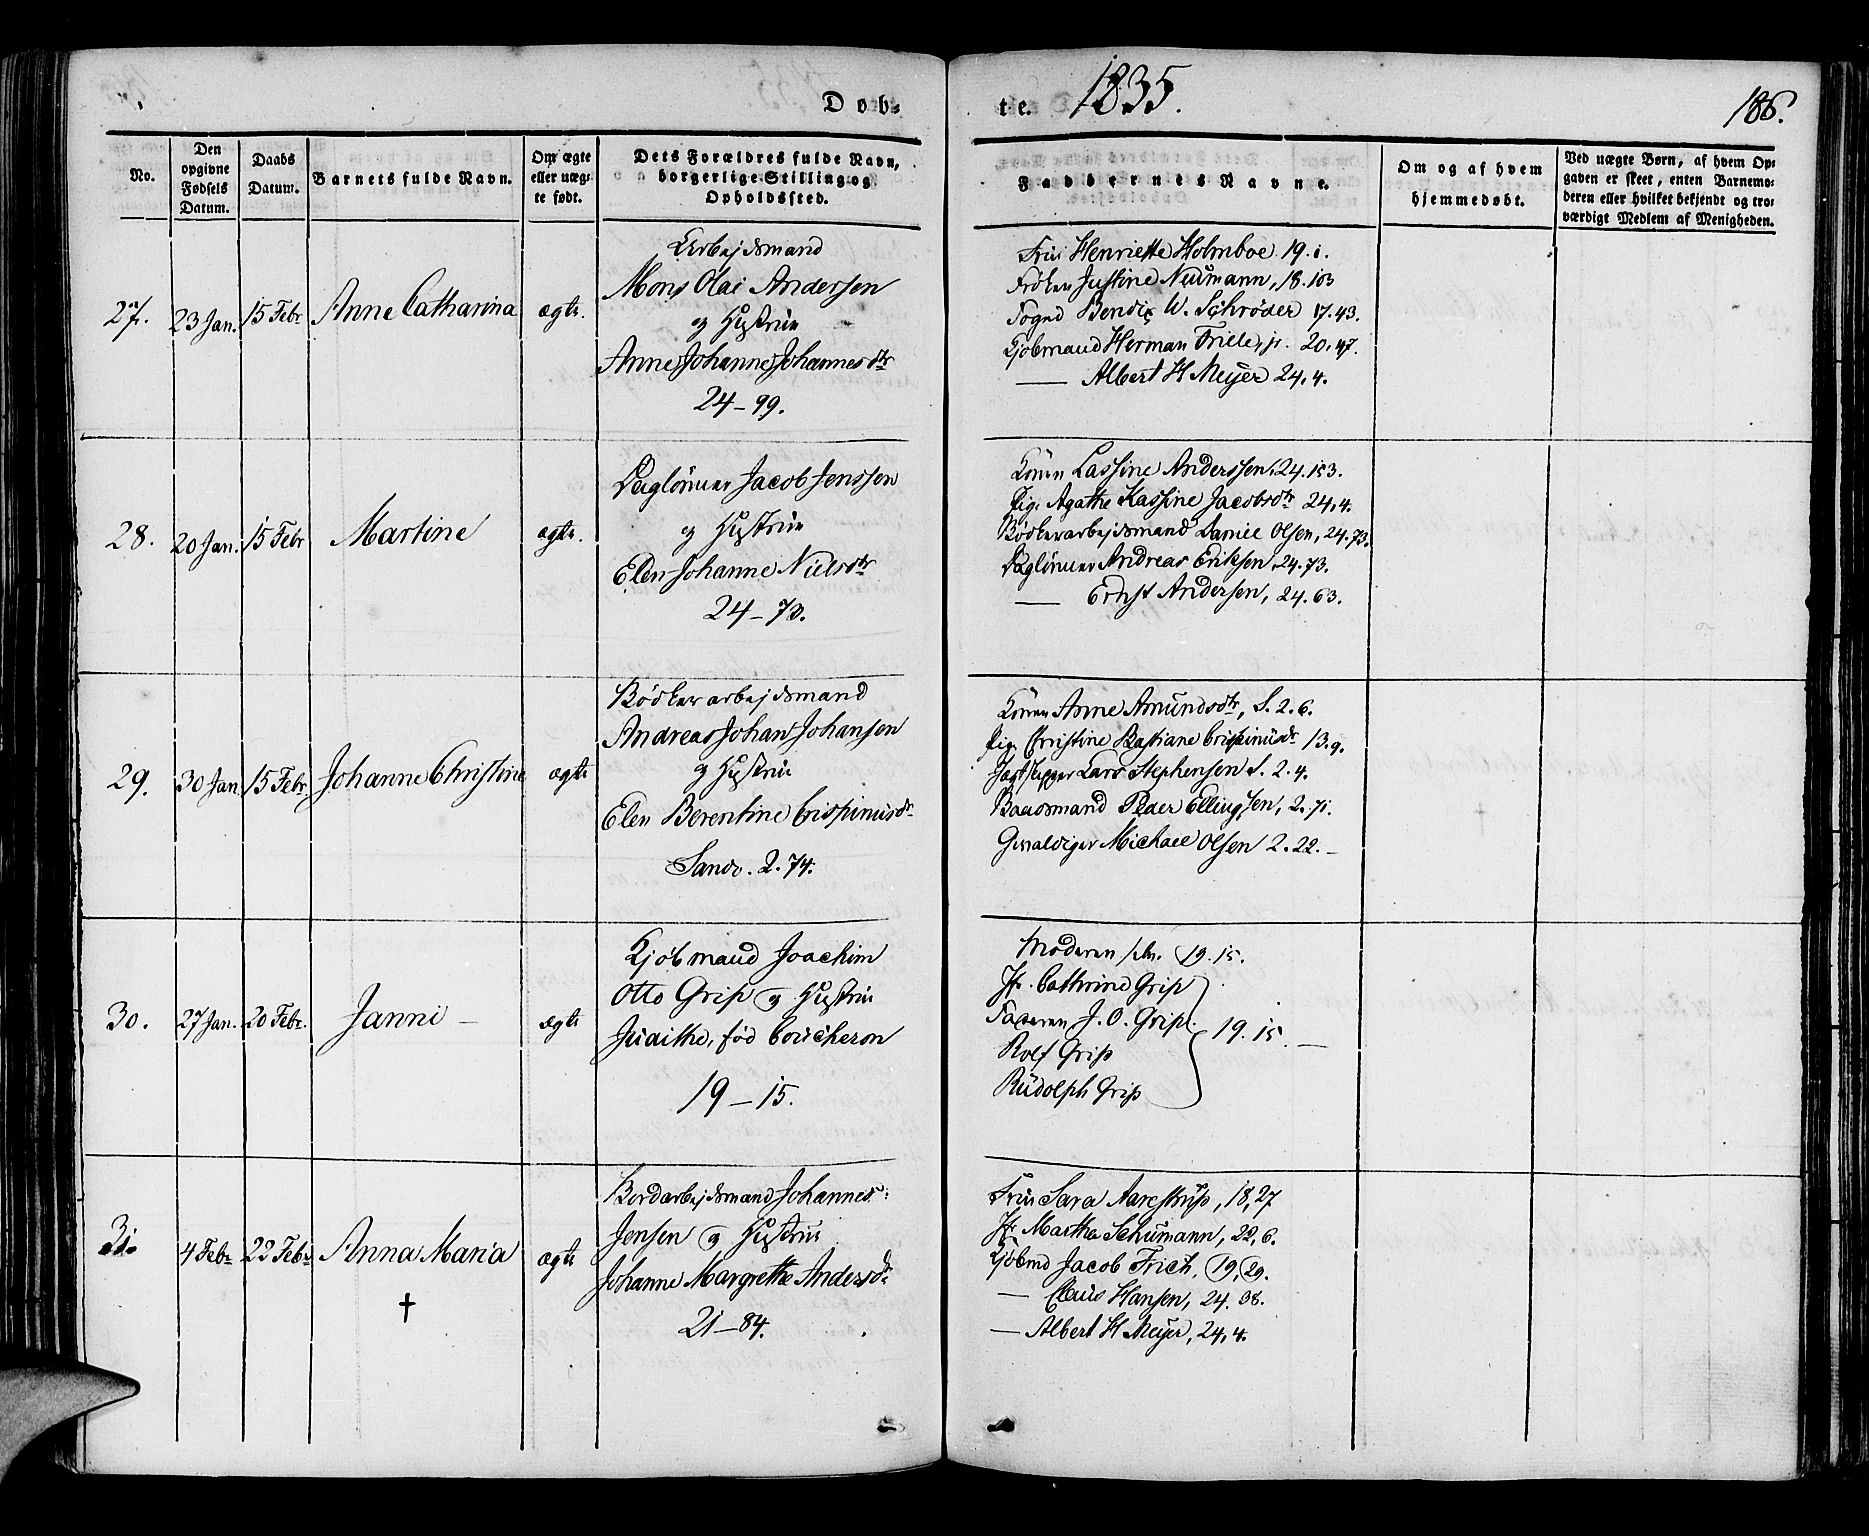 Døb-
te. 1835. 186.
No.
Den opgivne Fødsels Datum.
Daabs Datum.
Barnets fulde Navn.
Om ægte eller uægte født.
Dets Forældres fulde Navn, borgerlige Stilling og Opholdssted.
Faddernes Navne.
Om og af hvem hjemmedøbt.
Ved uægte Børn, af hvem Opgaven er skeet, enten Barnemoderen eller hvilket bekjendt og troværdigt Medlem af Menigheden.
27. 23 Jan. 15 Febr Anne Catharina ægte.
Arbejdsmand
Mons Olai Andersen
og Hustrue
Anne Johanne Johannesdtr
24-99.
Frue Henriette Holmboe 19.1.
Frøken Justine Neumann, 18.103
Fogd Bendix W. Schrøder 17.43.
Kjøbmand Herman Friele, jr. 20.47.
— Albert H Meyer 24.4.
28. 20 Jan. 15 Febr Martine ægte.
Daglønner Jacob Jenssen
og Hustrue
Elen Johanne Nielsdtr
24-73.
Konen Lassine Anderssen, 24.153.
Pig. Agathe Kassine Jacobsdtr 24,4.
Bødkerarbejdsmand Daniel Olsen, 24.73.
Daglønner Andreas Eriksen 24.73.
— Ernst Andersen, 24.63.
29. 30 Jan 15 Febr. Johanne Christine ægte
Bødkerarbejdsmand
Andreas Johan Johansen
og Hustrue
Elen Berentine Crispinusdr
Sandv. 2.74.
Konen Anne Amundsdtr, S. 2.6.
Pig. Christine Bastiane Crispinusdr 13.9.
Jagtskipper Lars Stephensen S. 2.4.
Baadsmand Peder Ellingsen, 2.71.
Gevaldiger Michael Olsen 2.22.–
30. 27 Jan. 20 Febr. Janni – ægte
Kjøbmand Joachim
Otto Grip og Hustrue
Judithe, fød Coucheron
19-15.
Moderen selv. 19.15.
Jfr. Cathrine Grip
Faderen J. O. Grip. 19.15.–
Rolf Grip
Rudolph Grip
31. 4 Febr 22 Febr Anna Maria ægte
†
Bordarbejdsmand Johannes
Jensen og Hustrue
Johanne Margrethe Andersdr
21-84.
Frue Sara Aarestrup, 18,27
Jfr Marthe Schumann, 22,6.
Kjøbmd Jacob Frich, 19,29.
— Claus Hansen, 24.38.
— Albert H Meyer, 24,4.